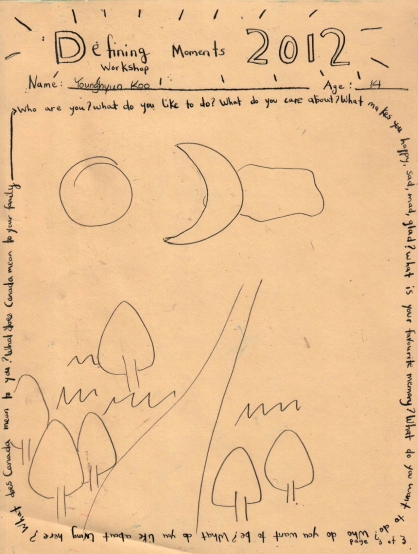 Defining Moments 2012
Workshop
Name: Younghyun Koo Age: 14
Who are you? What do you like to do? What do you care about? What makes you happy, sad, mad, glad? What is your favourite memory? What do you want to do?
Who do you want to be? What do you like about living here?
What does Canada mean to you? What does Canada mean to your family
page 3 of 3